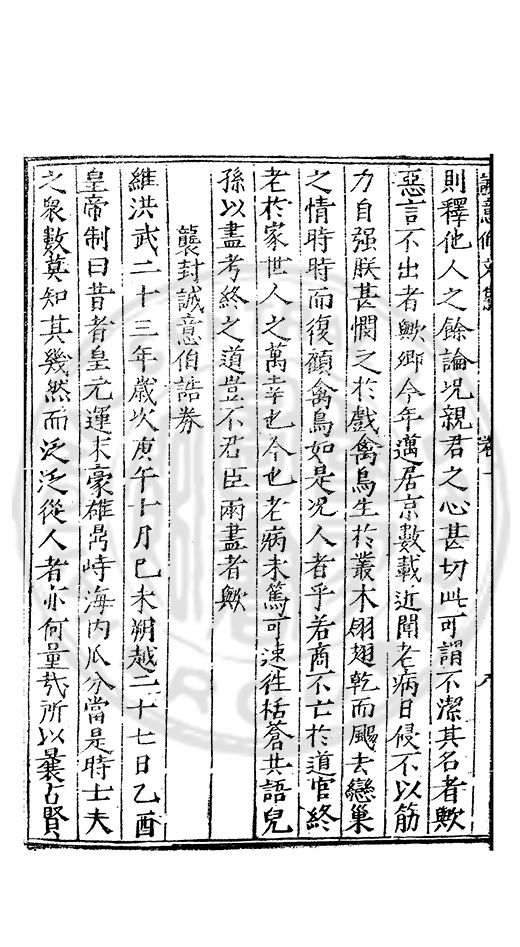 誠意伯文集 卷一 八
則釋他人之餘論况親君之心甚切此可謂不潔其名者歟
惡言不出者歟卿今年邁居京數載近聞老病日侵不以筋
力自强朕甚憫之於戲禽鳥生於叢木翎翅乾而颺去戀巢
之情時時而復顧禽鳥如是况人者乎若商不亡於道官終
老於家世人之萬幸也今也老病未篤可速徃栝蒼共語兒
孫以盡考終之道豈不君臣兩盡者歟
襲封誠意伯誥券
維洪武二十三年歲次庚午十月巳未朔越二十七日乙酉
皇帝制曰昔者皇元運末豪雄鼎峙海内瓜分當是時士夫
之衆數莫知其幾然而泛泛從人者亦何量㢤所以曩占賢